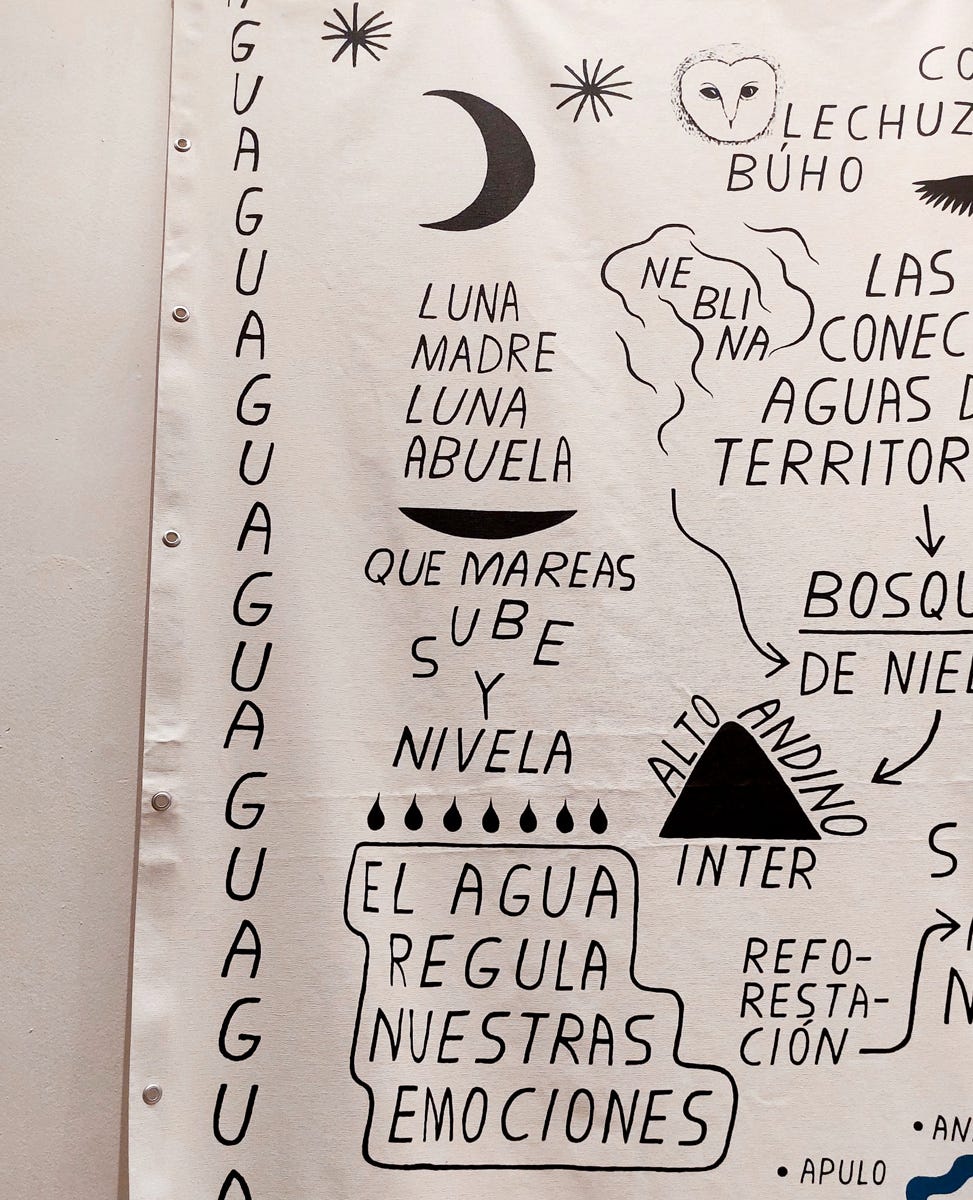 AGUAGUAGUAGUAGUAGUAGUA
LUNA
MADRE
LUNA
ABUELA
QUE MAREAS
SUBE
Y
NIVELA
EL AGUA
REGULA
NUESTRAS
EMOCIONES
CO
LECHUZ
BÚHO
NE
BLI
NA
LAS
CONEC
AGUAS D
TERRITOR
BOSQU
DE NIEL
ALTO ANDINO
INTER
S
REFO-
RESTA-
CIÓN
N
• AN
• APULO